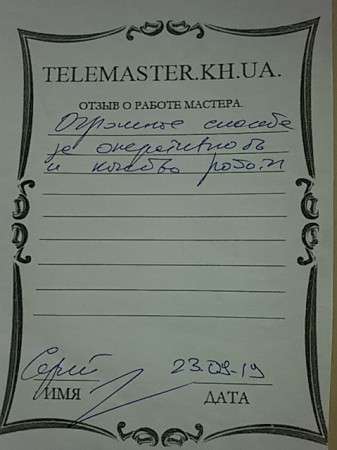 TELEMASTER.KH.UA.
ОТЗЫВ О РАБОТЕ МАСТЕРА.
Огромное спасибо
за оперативность
и качество работи
Сергей 23.09-19
ИМЯ ДАТА